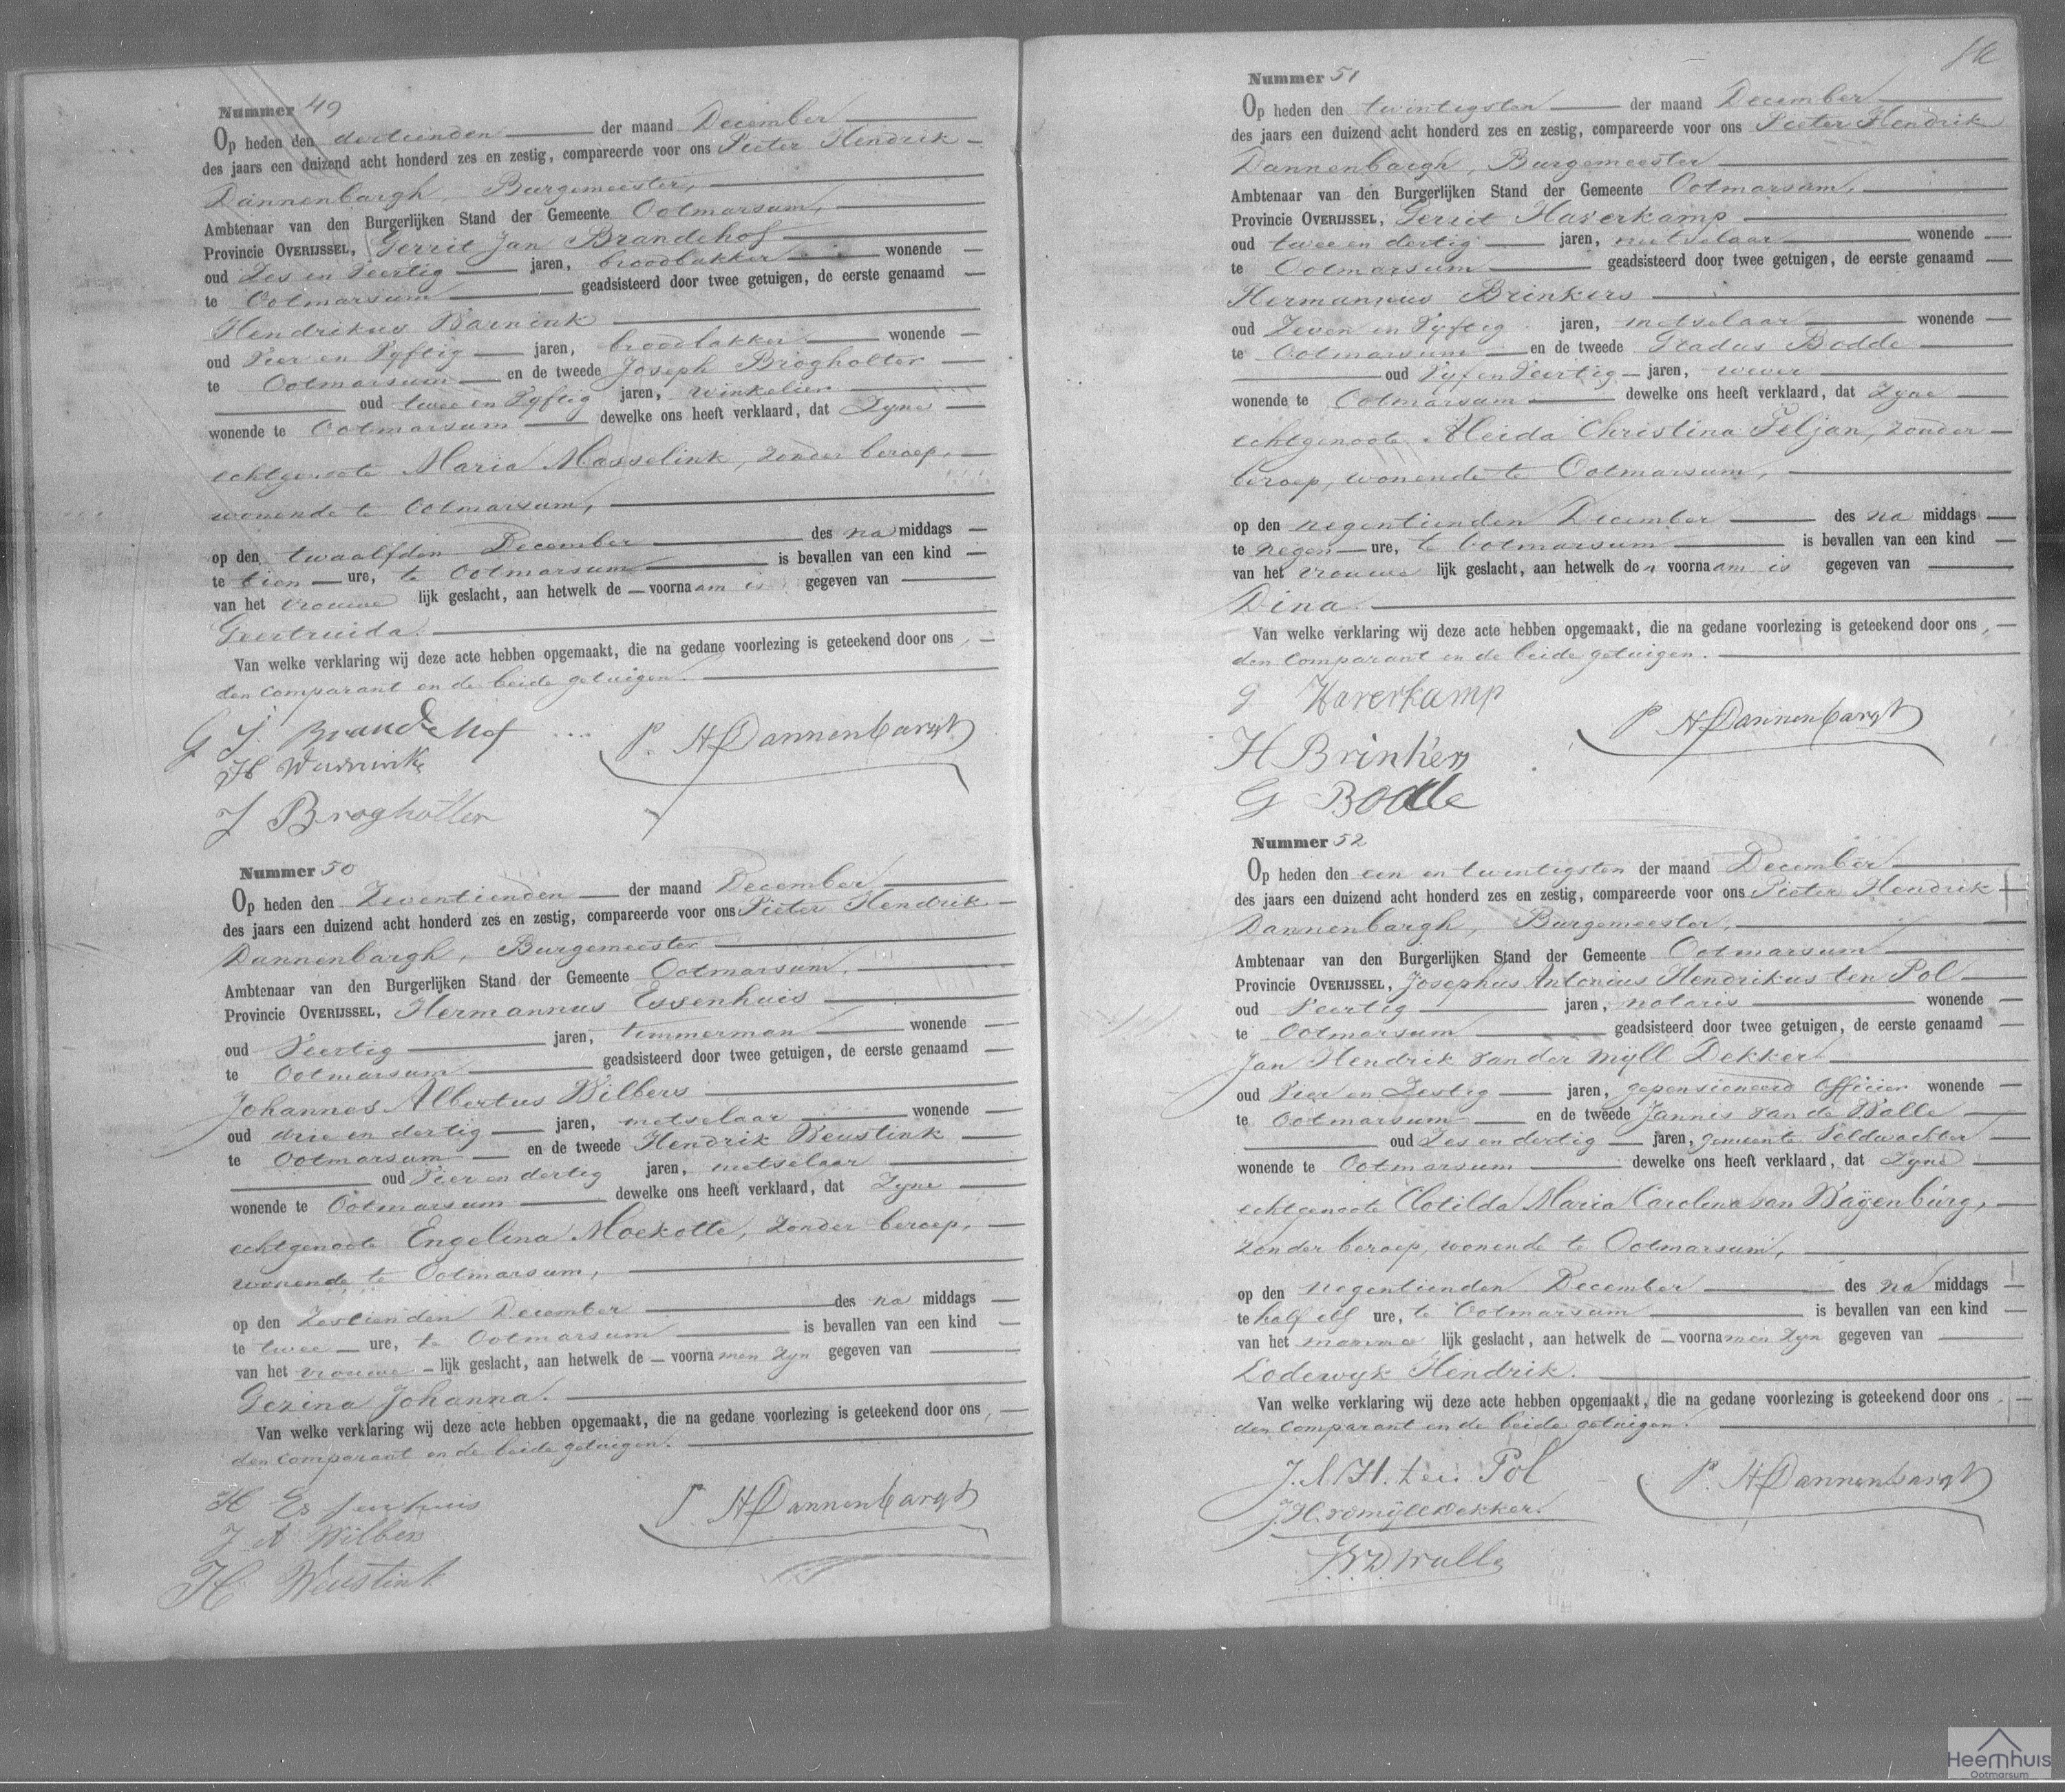 Nummer 49
Op heden den dertienden der maand December
des jaars een duizend acht honderd zes en zestig, compareerde voor ons Pieter Hendrik
Dannenbargh, Burgemeester,
Ambtenaar van den Burgerlijken Stand der Gemeente Ootmarsum,
Provincie OVERIJSSEL, Gerrit Jan Brandehof
oud Zes en Veertig jaren, broodbakker wonende
te Ootmarsum geadsisteerd door twee getuigen, de eerste genaamd
Hendrikus Warnink
oud Vier en Vyftig jaren, broodbakker wonende
te Ootmarsum en de tweede Joseph Brogholter
oud twee en Vyftig jaren, winkelier
wonende te Ootmarsum dewelke ons heeft verklaard, dat Zyne
echtgenoote Maria Masselink, zonder beroep,
wonende te Ootmarsum,
op den twaalfden December des na middags
te tien ure, te Ootmarsum is bevallen van een kind
van het vrouwe lijk geslacht, aan hetwelk de voornaam is gegeven van
Geertruida.
Van welke verklaring wij deze acte hebben opgemaakt, die na gedane voorlezing is geteekend door ons,
den comparant en de beide getuigen.
G J Brandehof
P. H Dannenbargh
H Warnink
J Brogholter
Nummer 50
Op heden den Zeventienden der maand December
des jaars een duizend acht honderd zes en zestig, compareerde voor ons Pieter Hendrik
Dannenbargh, Burgemeester
Ambtenaar van den Burgerlijken Stand der Gemeente Ootmarsum,
Provincie OVERIJSSEL, Hermannus Essenhuis
oud Veertig jaren, timmerman wonende
te Ootmarsum geadsisteerd door twee getuigen, de eerste genaamd
Johannes Albertus Wilbers
oud drie en dertig jaren, metselaar wonende
te Ootmarsum en de tweede Hendrik Weustink
oud Vier en dertig jaren, metselaar
wonende te Ootmarsum dewelke ons heeft verklaard, dat Zyne
echtgenoote Engelina Moekotte, zonder beroep,
wonende te Ootmarsum,
op den Zestienden December des na middags
te twee ure, te Ootmarsum is bevallen van een kind
van het vrouwe lijk geslacht, aan hetwelk de voornamen zyn gegeven van
Gezina Johanna.
Van welke verklaring wij deze acte hebben opgemaakt, die na gedane voorlezing is geteekend door ons,
den comparant en de beide getuigen.
H Essenhuis
P. H Dannenbargh
J A Wilbers
H Weustink
Nummer 51
Op heden den twintigsten der maand December
des jaars een duizend acht honderd zes en zestig, compareerde voor ons Pieter Hendrik
Dannenbargh, Burgemeester
Ambtenaar van den Burgerlijken Stand der Gemeente Ootmarsum,
Provincie OVERIJSSEL, Gerrit Haverkamp
oud twee en dertig jaren, metselaar wonende
te Ootmarsum geadsisteerd door twee getuigen, de eerste genaamd
Hermannus Brinkers
oud Zeven en Vyftig jaren, metselaar wonende
te Ootmarsum en de tweede Gradus Bodde
oud Vyf en Veertig jaren, wever
wonende te Ootmarsum dewelke ons heeft verklaard, dat Zyne
echtgenoote Aleida Christina Veljan, zonder
beroep, wonende te Ootmarsum,
op den negentienden December des na middags
te negen ure, te Ootmarsum is bevallen van een kind
van het vrouwe lijk geslacht, aan hetwelk de voornaam is gegeven van
Dina.
Van welke verklaring wij deze acte hebben opgemaakt, die na gedane voorlezing is geteekend door ons,
den comparant en de beide getuigen.
G Haverkamp
P H Dannenbargh
H Brinkers
G Bodde
Nummer 52
Op heden den een en twintigsten der maand December
des jaars een duizend acht honderd zes en zestig, compareerde voor ons Pieter Hendrik
Dannenbargh, Burgemeester,
Ambtenaar van den Burgerlijken Stand der Gemeente Ootmarsum
Provincie OVERIJSSEL, Josephus Antonius Hendrikus ten Pol
oud Veertig jaren, notaris wonende
te Ootmarsum geadsisteerd door twee getuigen, de eerste genaamd
Jan Hendrik van der Mÿll Dekker
oud Vier en Zestig jaren, gepensioneerd Officier wonende
te Ootmarsum en de tweede Jannis van de Walle
oud Zes en dertig jaren, gemeente Veldwachter
wonende te Ootmarsum dewelke ons heeft verklaard, dat Zyne
echtgenoote Clotilda Maria Carolina van Wayenburg,
zonder beroep, wonende te Ootmarsum,
op den negentienden December des na middags
te half elf ure, te Ootmarsum is bevallen van een kind
van het manne lijk geslacht, aan hetwelk de voornamen zyn gegeven van
Lodewyk Hendrik.
Van welke verklaring wij deze acte hebben opgemaakt, die na gedane voorlezing is geteekend door ons,
den comparant en de beide getuigen.
J. A. H. ten Pol
P. H Dannenbargh
J. H. vdmÿll Dekker.
J. V. D. Walle
Heemhuis
Ootmarsum